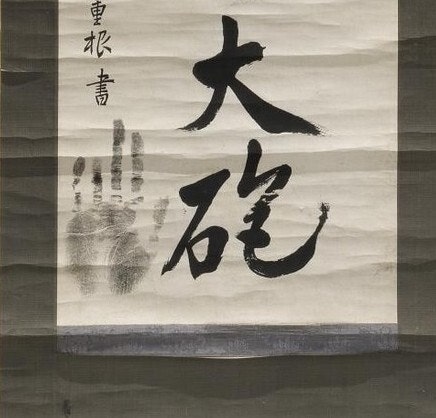 大砲
重根書